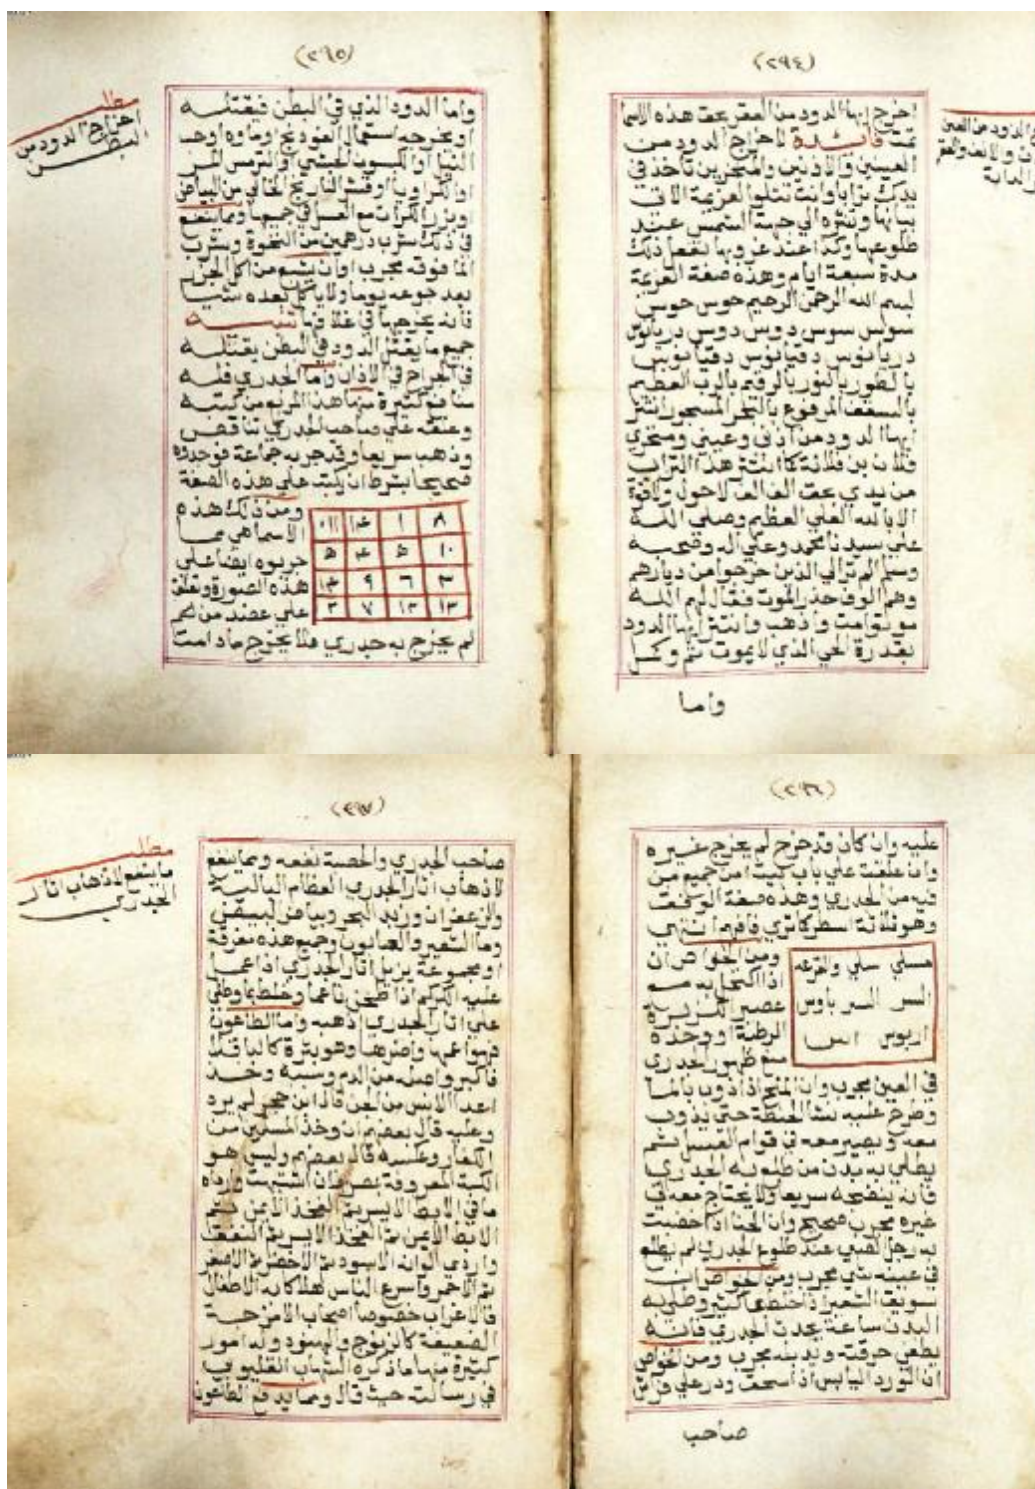 (٢٩٤)
اخرج ايها الدود من العقر بحق هذه الاسما
تمت فائدة لاخراج الدود من
العينين والاذنين والمنخرين تأخذ في
يدك ترابا وانت تتلوا العزيمة الاتي
بيانها وتنثره الي جهة الشمس عند
طلوعها وكذا عند غروبها تفعل ذلك
مدة سبعة ايام وهذه صفة العزيمة
بسم الله الرحمن الرحيم حوس حوس
سوس سوس دوس دوس
دريانوس دقيانوس دقيانوس
بالطور بالنور بالرقيم بالرب العظيم
بالسقف المرفوع بالبحر المسجور انتثر
ايها الدود من اذني وعيني ومنخري
فلان بن فلانة كما انتثر هذا التراب
من يدي بحق الف الف لاحول ولاقوة
الا بالله العلي العظيم وصلي الله
علي سيدنا محمد وعلي اله وصحبه
وسلم الم تر الي الذين خرجوا من ديارهم
وهم الوف حذر الموت فقال لهم الله
موتوا مت واذهب وانتثر ايها الدود
بقدرة الحي الذي لا يموت
واما
(٢٩٥)
مطلب
اخراج الدود من
البطن
واما الدود الذي في البطن فيقتله
او يخرجه استعمال الفودنج اوماوه اوحب
او الترمس المر
او الكراويا او قشر النارنج الخالي من البياض
وبزر الكراث مع العسل في جميعها ومما ينفع
في ذلك شرب درهمين من القهوة وشرب
الما فوقه مجرب اوان يشبع من اكل الجزر
بعد جوعه يوما ولا ياكل بعده شيا
فانه يخرجها في غلافها تنبيه
جميع ما يقتل الدود في البطن يقتله
في الجراح في الاذان واما الجدري فله
منافع كثيرة منها هذا المربع من كتبه
وعلقه علي صاحب الجدري تناقص
وذهب سريعا وقد جربه جماعة فوجدوه
صحيحا بشرط ان يكتب علي هذه الصفة
ومن ذلك هذه
الاسما هي مما
جربوه ايضا علي
هذه الصورة وتعلق
علي عضد من لم
٨ ١ ١٤ ١١
١٠ ٤ ٥
٣ ٦ ٩
١٣ ١٢ ٧ ٢
لم يخرج به جدري فلا يخرج مادامت
(٢٩٦)
عليه وان كان قد خرج لم يخرج غيره
وان علقت علي باب بيت امن جميع من
فيه من الجدري وهذه صفة
وهو ثلاثة اسطر كما تري فافهم انتهي
ومن الخواص ان
اذا اكتحل به مع
عصير الكزبرة
الرطبة او وحده
منع ظهور الجدري
في العين مجرب وان الملح اذا ذوب بالما
وطرح عليه نشا الحنطة حتي يذوب
معه ويصير معه في قوام العسل ثم
يطلي به بدن من طلع به الجدري
فانه ينضجه سريعا ولا يحتاج معه في
غيره مجرب صحيح وان الحنا اذا خضبت
به رجل الصبي عند طلوع الجدري لم يطلع
في عينيه شي مجرب ومن الخواص ان
سويق الشعير اذا خلط بما كثير وطلي به
البدن ساعة يحدث الجدري فانه
يطفي حرقته ويذبله مجرب ومن الخواص
ان الورد اليابس اذا اسحق وذر علي فراش
صاحب
(٢٩٧)
مطلب
ما ينفع لاذهاب اثار
الجدري
صاحب الجدري والحصبة نفعه ومما ينفع
لاذهاب اثار الجدري العظام البالية
والزعفران وزبد البحر وبياض البيض
وما الشعير والصابون وجميع هذه مفرقة
او مجموعة يزيل اثار الجدري اذا عمل
عليه الكركم اذا طحن ناعما وخلط بما وطلي
علي اثار الجدري اذهبه واما الطاعون
فهو اعمها واضرها وهو بثرة كالباقلا
فاكبر واصله من الدم وسببه وخز
اعدا الانس من الجن قال ابن حجر لم يره
وعليه قال بعضهم ان وخز المسلمين من
الكفار وعكسه قال بعضهم وليس هو
الكبة المعروفة بمصر
ما في الابط الايسر ثم الفخذ الايمن ثم
الابط الايمن ثم الفخذ الايسر ثم العنق
واردي الوانه الاسود ثم الاخضر ثم الاصفر
ثم الاحمر واسرع الناس هلاكا به الاطفال
فالاغراب خصوصا اصحاب الامزجة
الضعيفة كالزنوج والهنود وله امور
كثيرة منها ما ذكره الشهاب القليوبي
في رسالته حيث قال ومما يدفع الطاعون